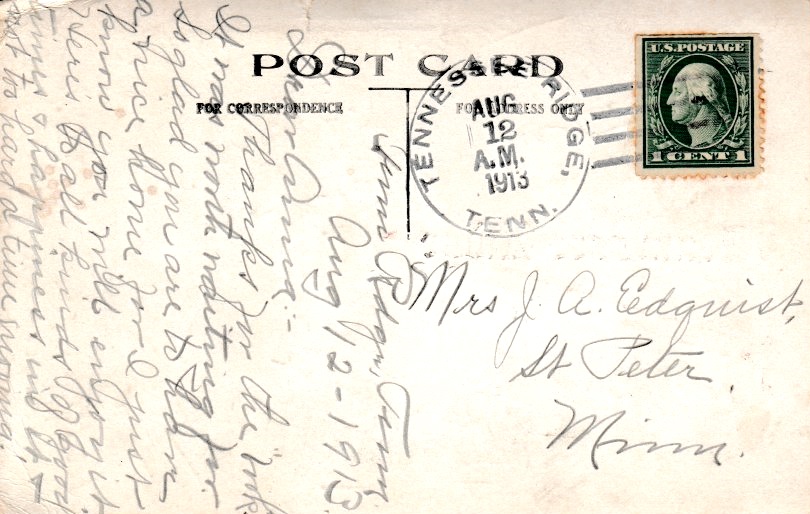 POST CARD
FOR CORRESPONDENCE
FOR ADDRESS ONLY
TENNESSEE RIDGE,
AUG
12
A.M.
1913
TENN.
U.S. POSTAGE
1 CENT 1
Mrs J. A. Edquist,
St Peter
Minn.
Tenn Ridge, Tenn
Aug 12-1913
Thanks for the
It was worth waiting for
So glad you are to have
a nice Home for I just
know you will enjoy it
Here all kinds of Good
times & happiness in it &
not to hard a time